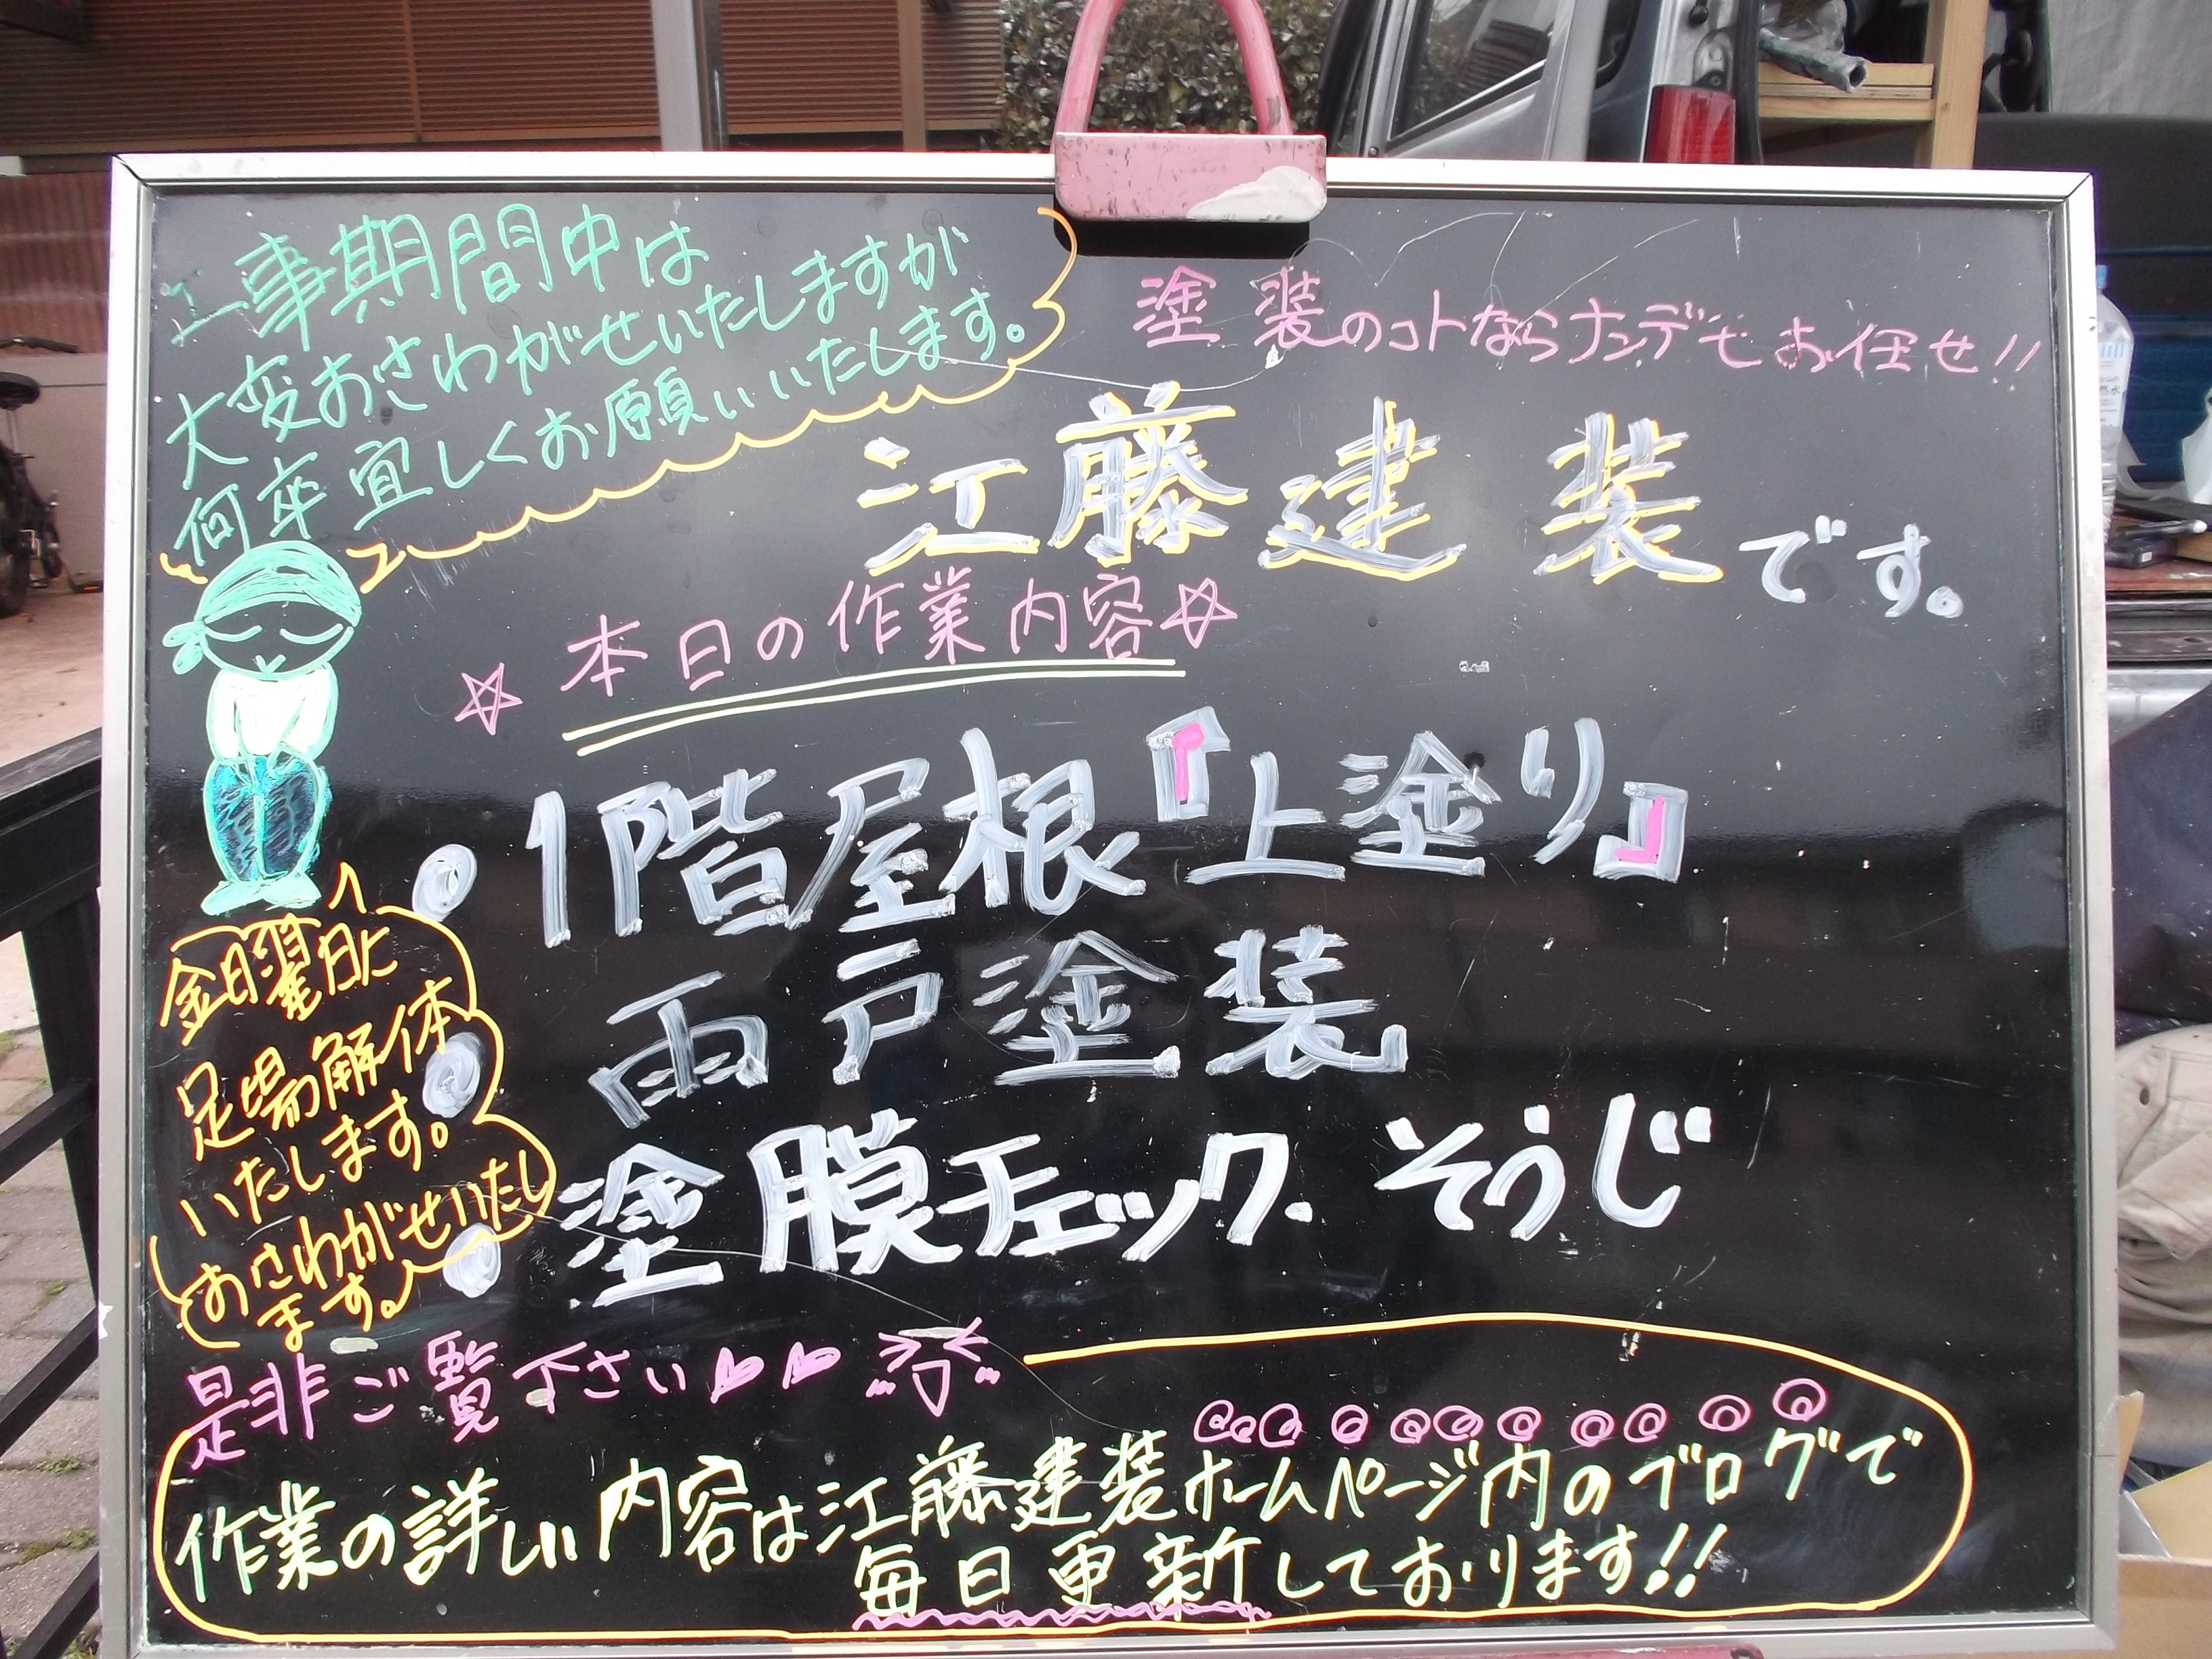 工事期間中は
大変おさわがせいたしますが
何卒宜しくお願いいたします。
塗装のコトならナンデモお任せ!!
江藤建装です。
☆本日の作業内容☆
1階屋根『上塗り』
雨戸塗装
塗膜チェック.そうじ
金曜日に
足場解体
いたします。
おさわがせいたし
ます。
是非ご覧下さい
作業の詳しい内容は江藤建装ホームページ内のブログで
毎日更新しております!!